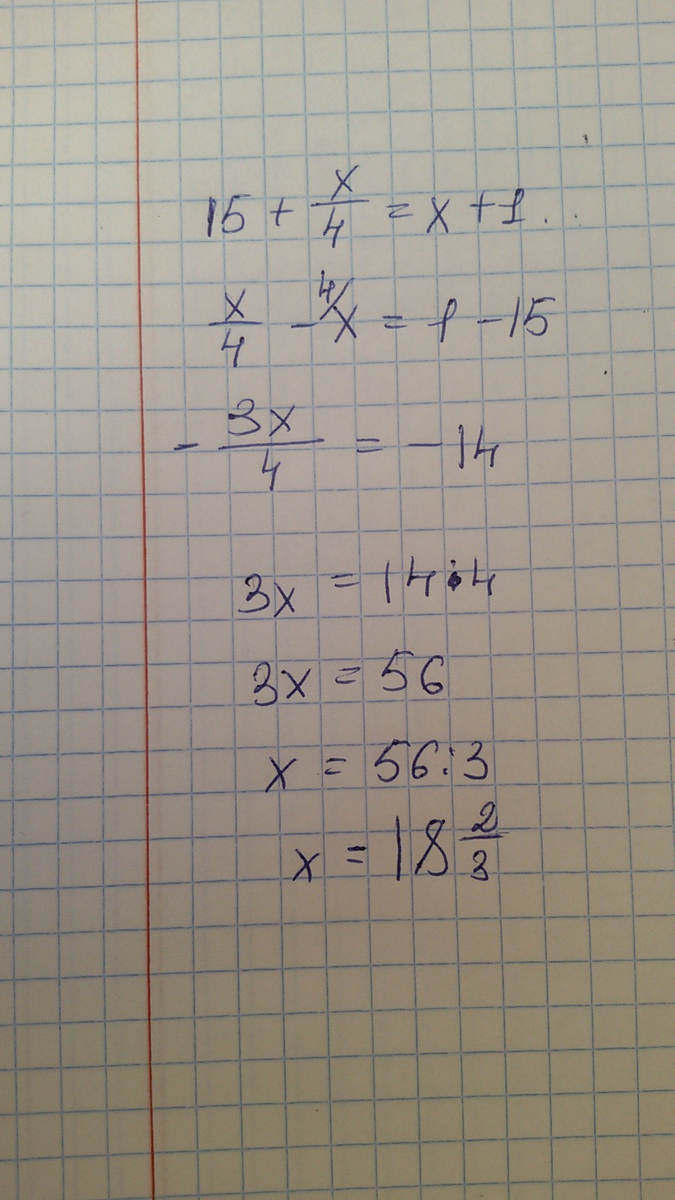 15 + x/4 = x + 1
x/4 - ⁴⁄x = 1 - 15
- 3x/4 = - 14
3x = 14·4
3x = 56
x = 56:3
x = 18 2/3